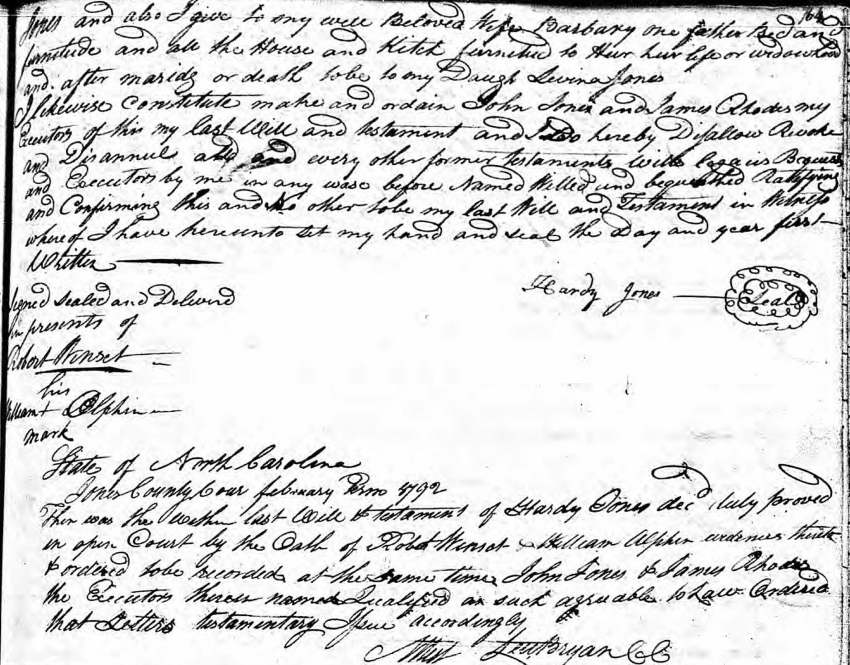 164
Jones and also I give to my well Beloved Wife Barbary one father Bed and
furnitude and all the House and Kitch furnitud to Hur hur life or widowhood
and after maridg or death to be to my Daugh Levina Jone
I likewise Constitute make and ordain John Jones and James Rhodes my
Executors of this my last Will and testament and I do hereby Disallow Revoke
and Disannul all and every other former testaments wills legacis Bequests
and Executors by me in any wase before Named Willed and bequethed Ratifying
and Confirming this and No other to be my last Will and Testament in Witness
whereof I have hereunto set my hand and seal the Day and year first
Written
Hardy Jones Seal
Signed Sealed and Deliverd
in presents of
Robert Winset
his
William + Alphin
mark
State of North Carolina
Jones County Cour february Term 1792
Then was the within last Will & testament of Hardy Jones decd duly proved
in open Court by the Oath of Robt Winset & William Alphin thereto
& ordered to be recorded at the same time John Jones & James Rhodes
the Executors therein named Qualifyd as such agreuable to Law Ordered
that Letters testamentary Issue accordingly
Attest Lew Bryan CC